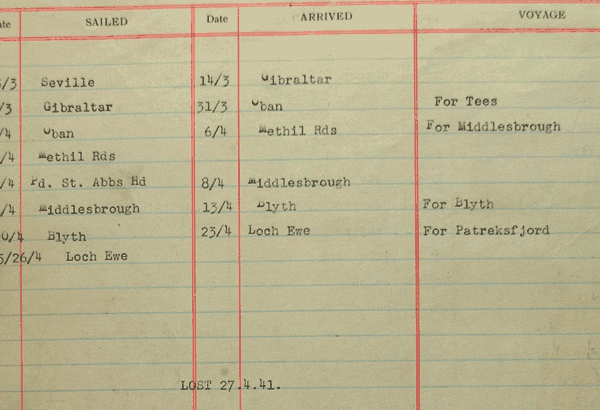 ate SAILED Date ARRIVED VOYAGE
/3 Seville 14/3 Gibraltar
/3 Gibraltar 31/3 Oban For Tees
/4 Oban 6/4 Methil Rds For Middlesbrough
/4 Methil Rds
/4 Pd. St. Abbs Hd 8/4 Middlesbrough
/4 Middlesbrough 13/4 Blyth For Blyth
0/4 Blyth 23/4 Loch Ewe For Patreksfjord
5/26/4 Loch Ewe
LOST 27.4.41.